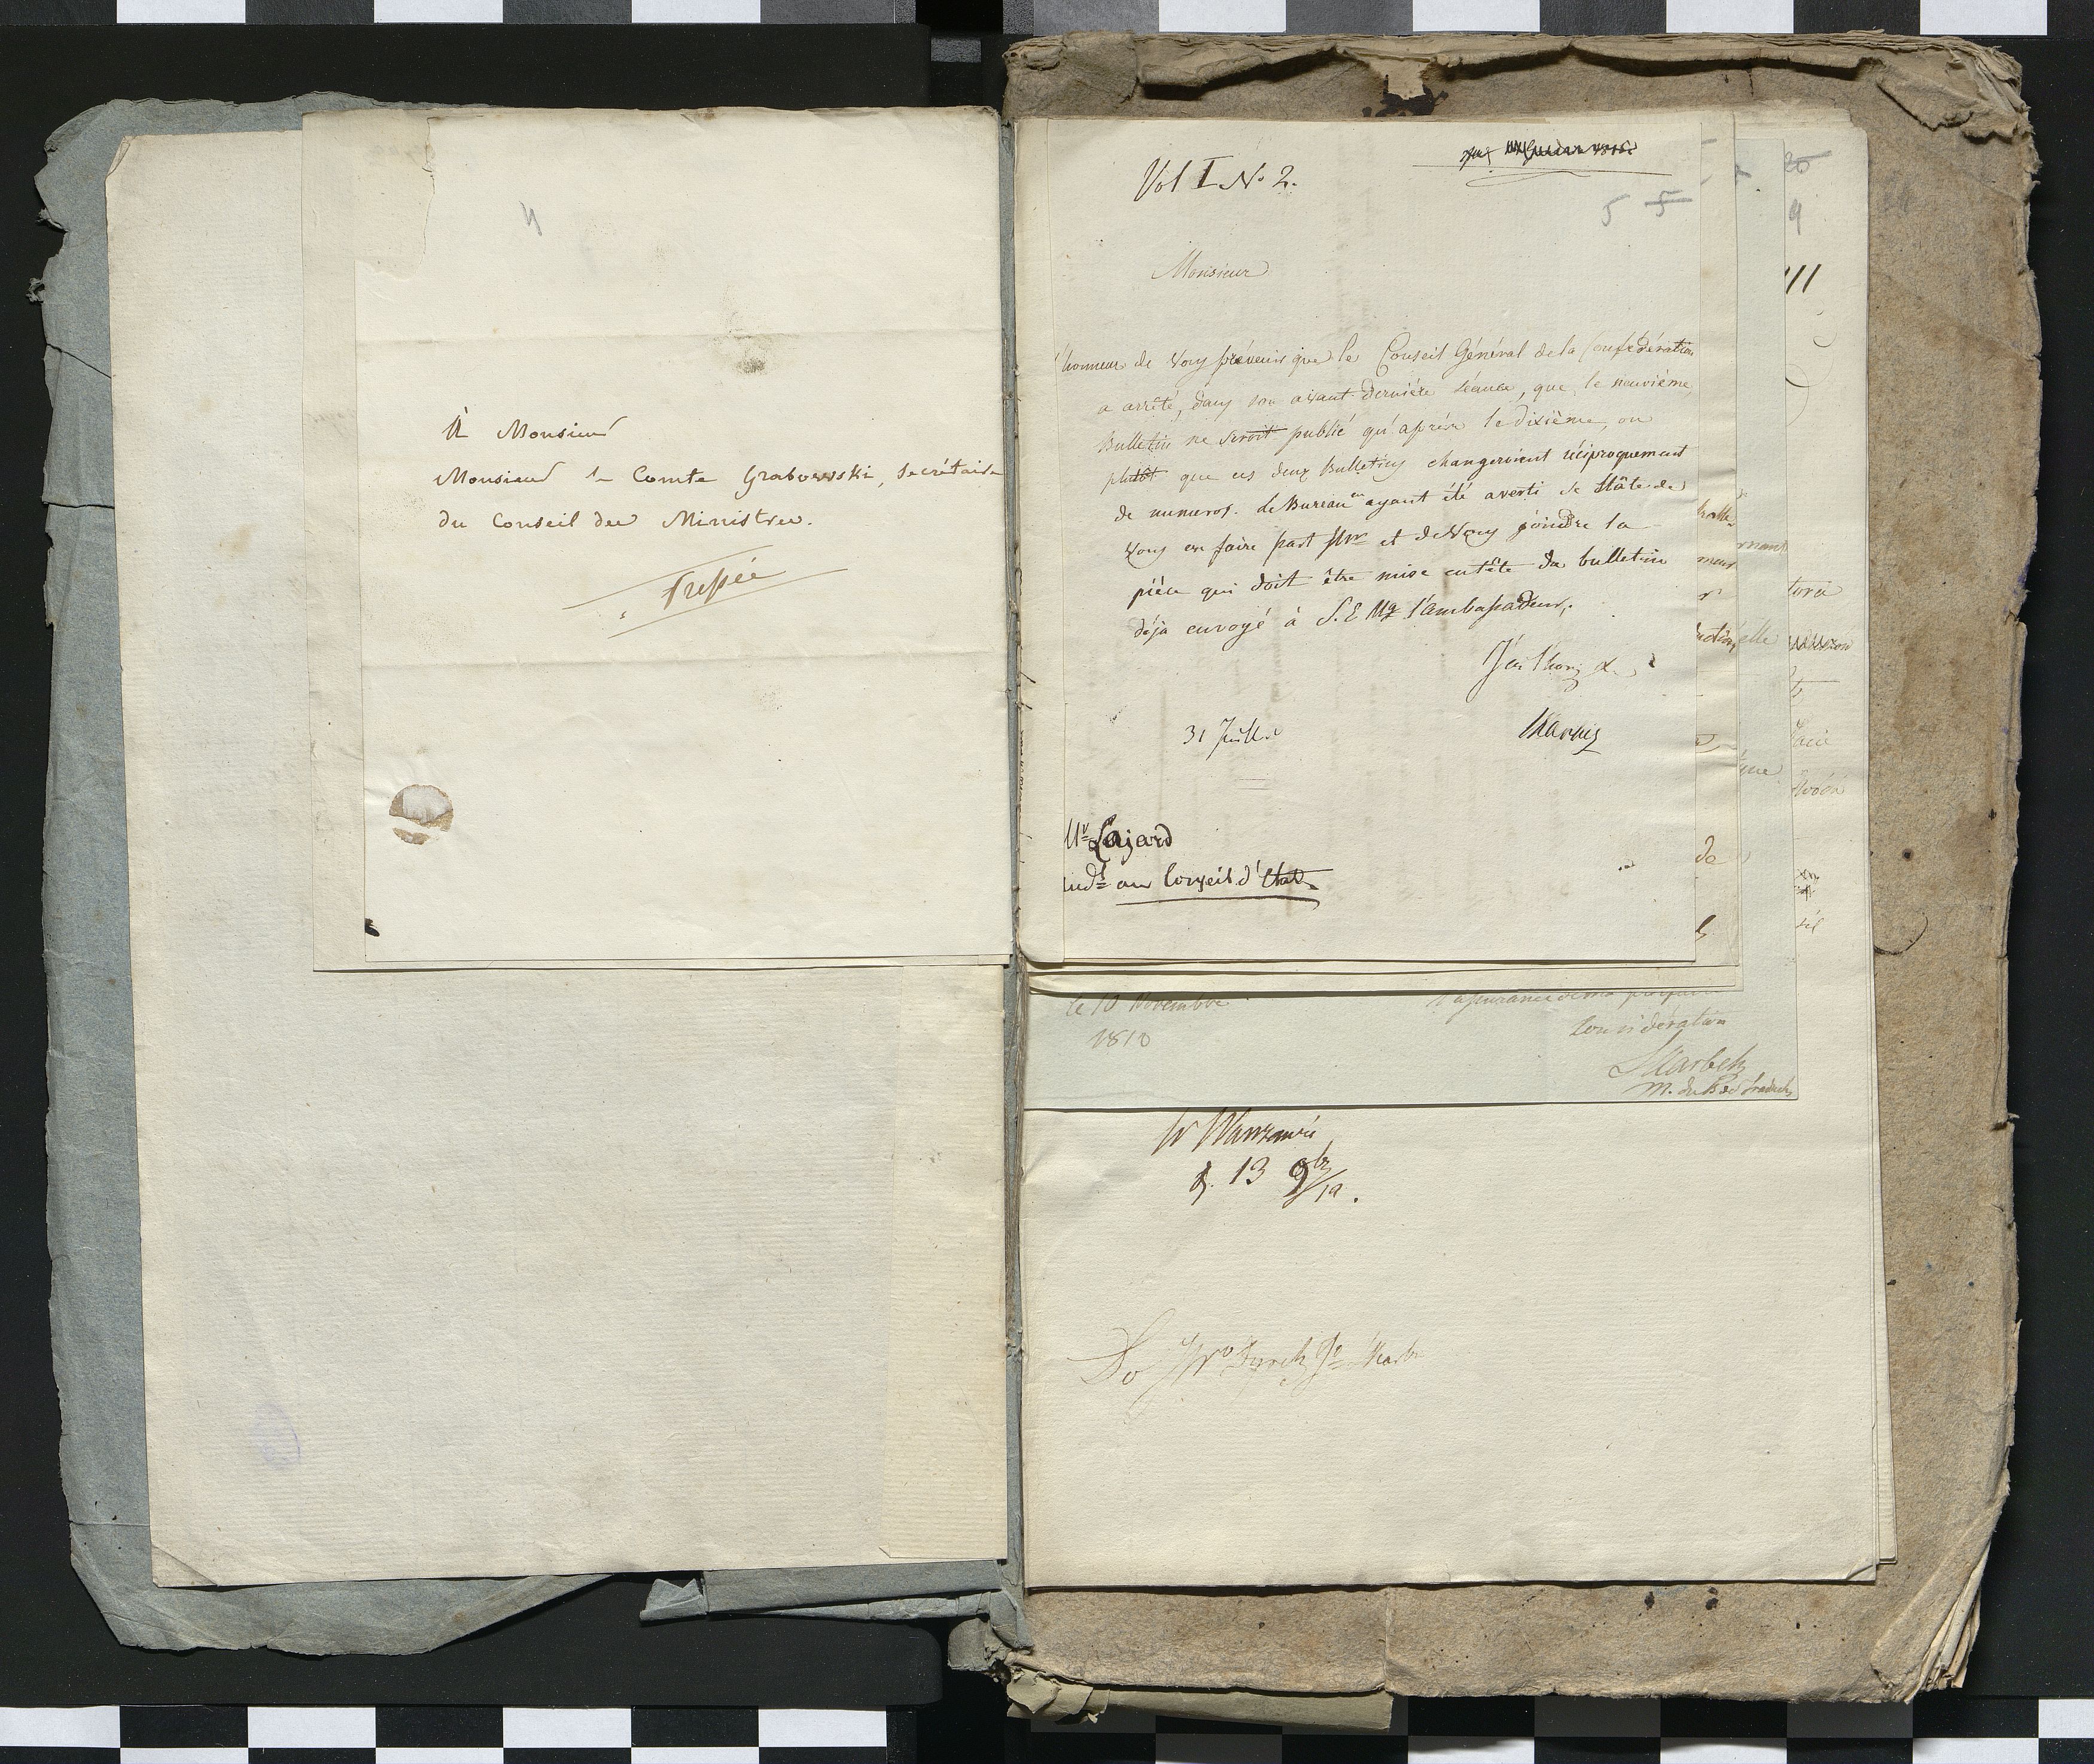 4
À Monsieur
Monsieur le Comte Grabowski, Secrétaire
du Conseil des Ministres.
Pressée
Vol I No 2.
5 5
Monsieur
l'honneur de vous prévenir que le Conseil Général de la Confédération
a arrêté, dans son avant dernière séance, que le neuvième
Bulletin ne seroit publié qu'après le dixième, ou
plutôt que ces deux Bulletins changeroient réciproquement
de numeros. Le Bureau en ayant été averti se hâte de
vous en faire part Mr et de vous joindre la
pièce qui doit être mise entête du bulletin
déjà envoyé à S. E Mgr l'ambassadeur.
J'ai l'hon
31 Juillet
Skarbek
Mr Lajard
Audr au Conseil d'Etat
20
9
11
de
le 10 Novembre
1810
l'assurance de ma parfaite
Considération
Skarbek
m. du B. de traduct
w Warszawie
d. 13 9br/10.
Do